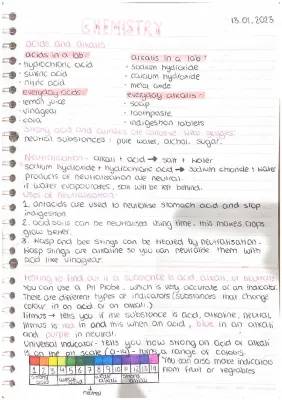 13.01.2023
CHEMISTRY
acids and alkalis
acids in a lab:
alkalis in a lab:
• hydrochloric acid
• sodium hydroxide
• sulfuric acid
• calcium hydroxide
• nitric acid
everyday acids:
everyday alkalis:
• lemon juice
• soap
• vinegar
• toothpaste
• cola
• indigestion tablets
strong acid and alkalis are corrosive with
neutral substances: pure water, alcohol, sugar.
Neutralisation: alkali + acid → salt + water
sodium hydroxide + hydrochloric acid → sodium chloride + water
products of neutralisation are neutral.
if water evapourates, salt will be left behind.
Uses of Neutralisation:
1. antacids are used to neutralise stomach acid and stop
indigestion
2. acid soils can be neutralised using lime, this makes crops
grow better.
3. Wasp and bee stings can be treated by neutralisation.
Wasp stings are alkaline so you can neutralise them with
acid like vinegar.
Testing to find out if a substance is acid, alkali, or neutral:
You can use a PH Probe, which is very accurate or an indicator.
There are different types of indicators (substances that change
colour in an acid or an alkali.)
litmus → tells you if the substance is acid, alkaline, neutral
litmus is red in and this when an acid, blue in an alkali
and purple in neutral.
Universal indicator - tells you how strong an acid or alkali
is on the pH scale - turns a range of colours.
1 2 3 4 5 6 7 8 9 10 11 12 13 14
You can also make indicators
strong acid
weak acid
weak alkali
strong alkali
from fruit or vegetables
neutral